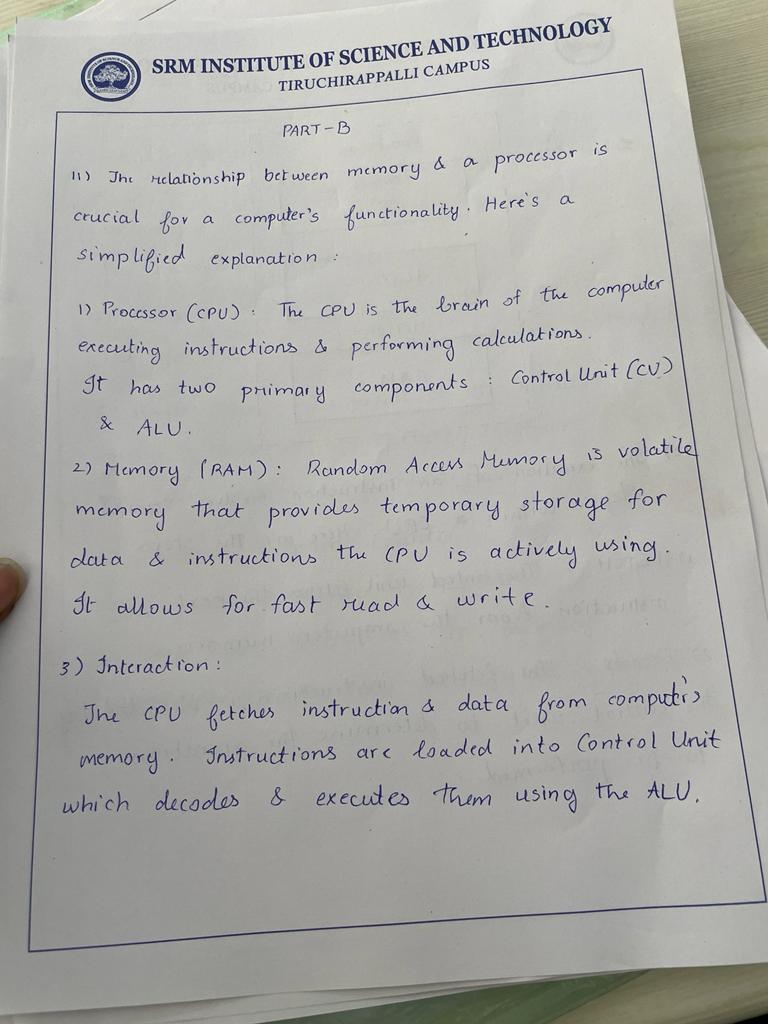 SRM INSTITUTE OF SCIENCE AND TECHNOLOGY
TIRUCHIRAPPALLI CAMPUS
PART-B
11) The relationship between memory & a processor is
crucial for a computer's functionality. Here's a
simplified explanation :
1) Processor (CPU) : The CPU is the brain of the computer
executing instructions & performing calculations.
It has two primary components : Control Unit (CU)
& ALU.
2) Memory (RAM) : Random Access Memory is volatile
memory that provides temporary storage for
data & instructions the CPU is actively using.
It allows for fast read & write.
3) Interaction :
The CPU fetches instruction & data from computer's
memory. Instructions are loaded into Control Unit
which decodes & executes them using the ALU.